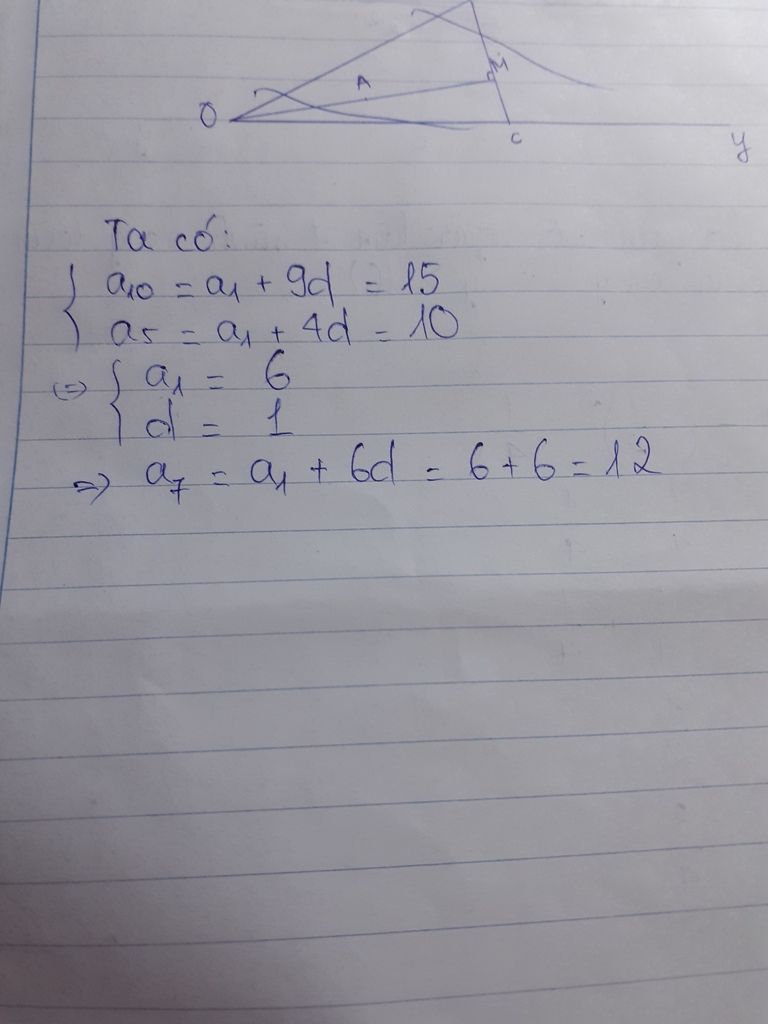 M
A
O
C
y
Ta có:
{ a₁₀ = a₁ + 9d = 15
a₅ = a₁ + 4d = 10
⇔ { a₁ = 6
d = 1
⇒ a₇ = a₁ + 6d = 6 + 6 = 12